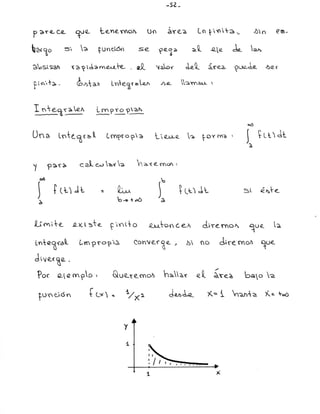 -32-
parece que tenemos un área infinita, sin em-
bargo si la función se pega al eje de las
abscisas rapidamente, el valor del área puede ser
finita. Estas integrales se llaman:
Integrales impropias
Una integral impropia tiene la forma: ∫ₐ^∞ f(t) dt
y para calcularla haremos:
∫ₐ^∞ f(t) dt = lim_{b→+∞} ∫ₐ^b f(t) dt si éste
límite existe finito entonces diremos que la
integral impropia converge, si no diremos que
diverge.
Por ejemplo: Queremos hallar el área bajo la
función f(x) = 1/x² desde x=1 hasta x=+∞
y
1
1 x